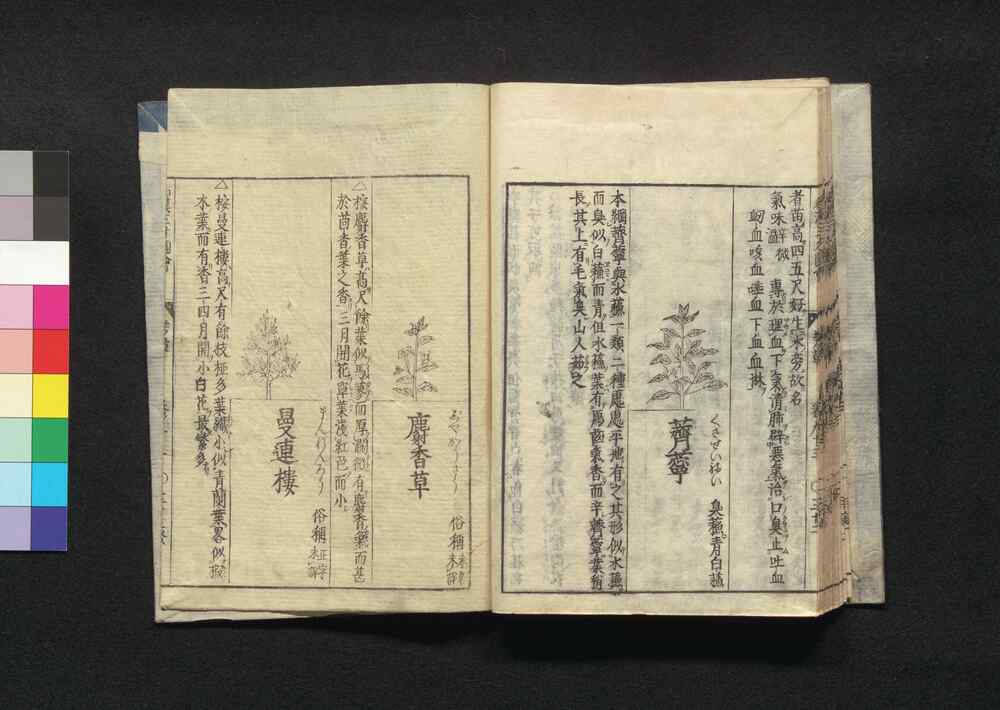 者苗高四五尺好生水旁故名
氣味辛微溫 專於理血下氣清肺辟惡氣治口臭止吐血
衂血咳血唾血下血血淋
くさせいねい
薺薴 臭蘇 青白蘇
本綱薺薴與水蘇一類二種應思平地有之其形似水蘇
而臭似白蘇而青但水蘇葉有鴈齒氣香而辛薺薴葉稍
長其上有毛氣臭山人茹之
じやかうさう
麝香草 俗稱
△按麝香草高尺餘葉似而厚濶微有麝香氣而甚
於茴香葉之香三月開花窄葉淺紅色而小
まんねんろう
曼連樓 俗稱 正字未詳
△按曼連樓高尺有餘枝椏多葉纎小似青蘭葉畧似
木葉而有香三四月開小白花最繁多